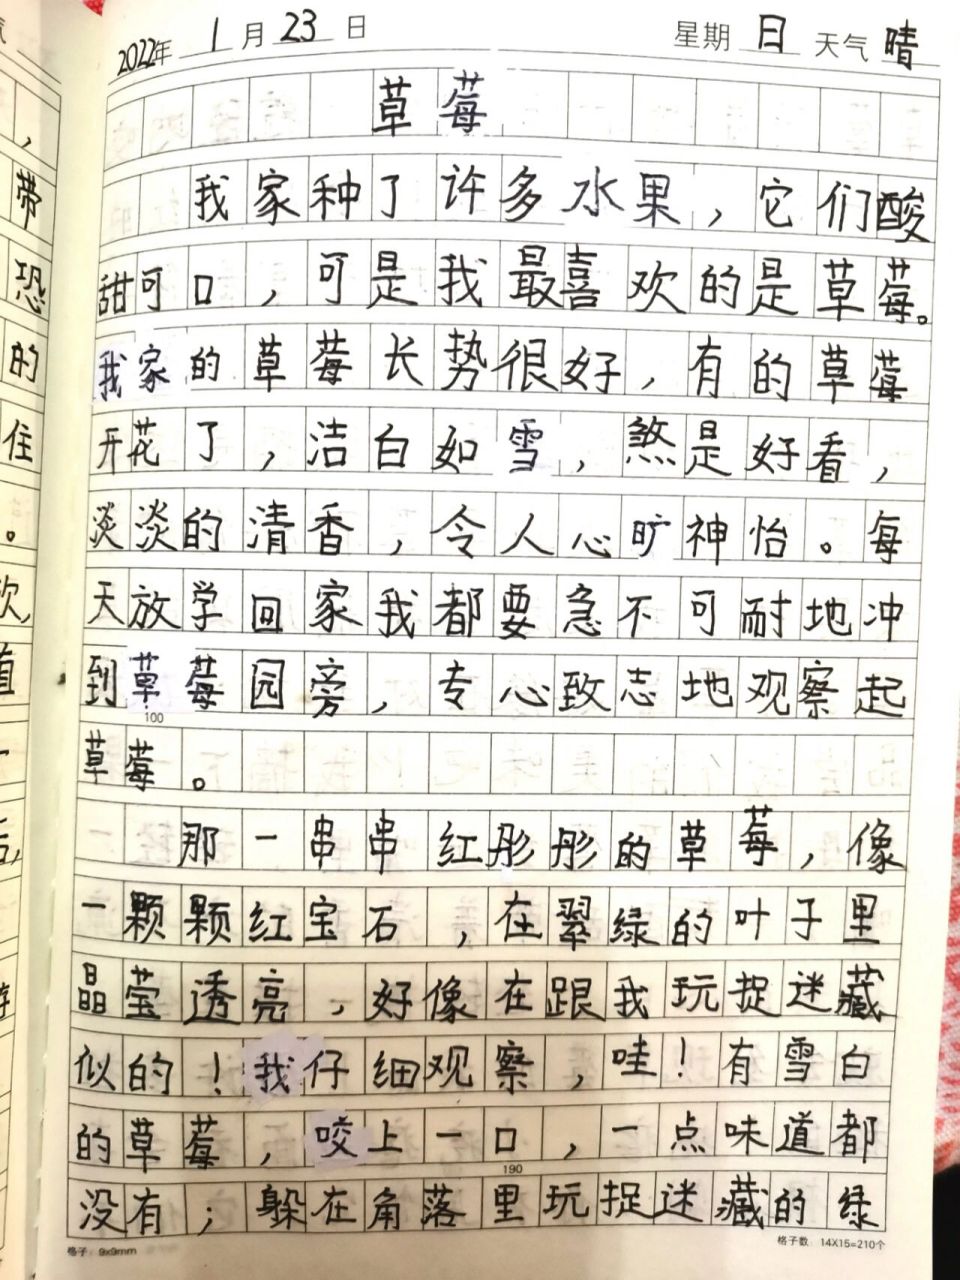 2022年 1月 23日 星期日 天气 晴
草莓
我家种了许多水果，它们酸
甜可口，可是我最喜欢的是草莓。
我家的草莓长势很好，有的草莓
开花了，洁白如雪，煞是好看，
淡淡的清香，令人心旷神怡。每
天放学回家我都要急不可耐地冲
到草莓园旁，专心致志地观察起
100
草莓。
那一串串红彤彤的草莓，像
一颗颗红宝石，在翠绿的叶子里
晶莹透亮，好像在跟我玩捉迷藏
似的！我仔细观察，哇！有雪白
的草莓，咬上一口，一点味道都
190
没有；躲在角落里玩捉迷藏的绿
格子：9x9mm 格子数：14X15=210个
带
恐
的
住
。